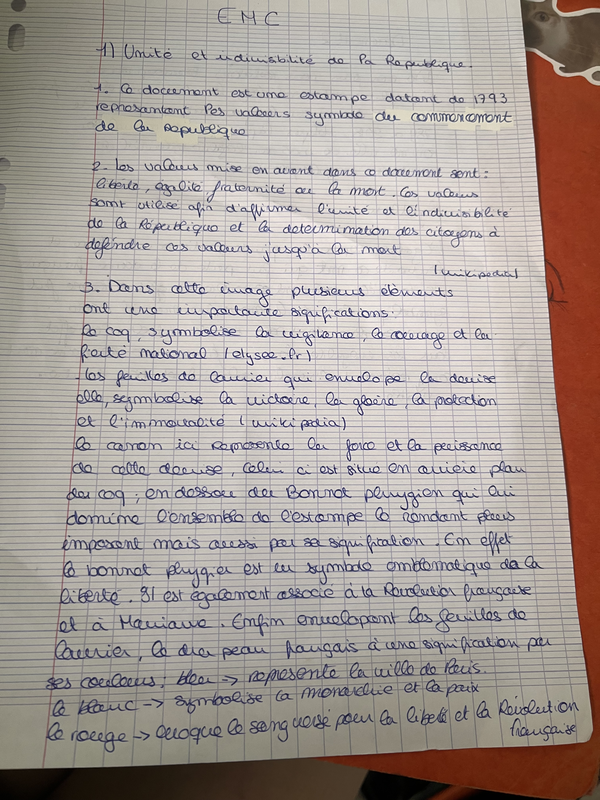 EMC
1) Unité et indivisibilité de la Republique.
1. Ce document est une estampe datant de 1793
representant les valeurs symbole du commencement
de la Republique
2. Les valeurs mise en avant dans ce document sont :
liberté, egalité, fraternité ou la mort. Ces valeurs
sont utilisé afin d'affirmer l'unité et l'indivisibilité
de la République et la determination des citoyens à
défendre ces valeurs jusqu'à la mort
(wikipedia)
3. Dans cette image plusieurs eléments
ont une importante signification :
le coq, symbolise la vigilance, le courage et la
fierté national (elysee.fr)
Les feuilles de laurier qui envelope la devise
elle, symbolise la victoire, la gloire, la protection
et l'immortalité (wikipedia)
le canon ici represente la force et la puissance
de cette devise, Celui ci est situé en arrière plan
du coq ; en dessou du Bonnet phrygien qui lui
domine l'ensemble de l'estampe le rendant plus
imposant mais aussi par sa signification. En effet
le bonnet phrygien est un symbole emblematique de la
liberté. Il est également associé à la Revolution française
et à Marianne. Enfin envelopant les feuilles de
laurier, le dra peau français à une signification par
ses couleurs : bleu → represente la ville de Paris.
le blanc → symbolise la monarchie et la paix
le rouge → evoque le sang versé pour la liberté et la Révolution
française